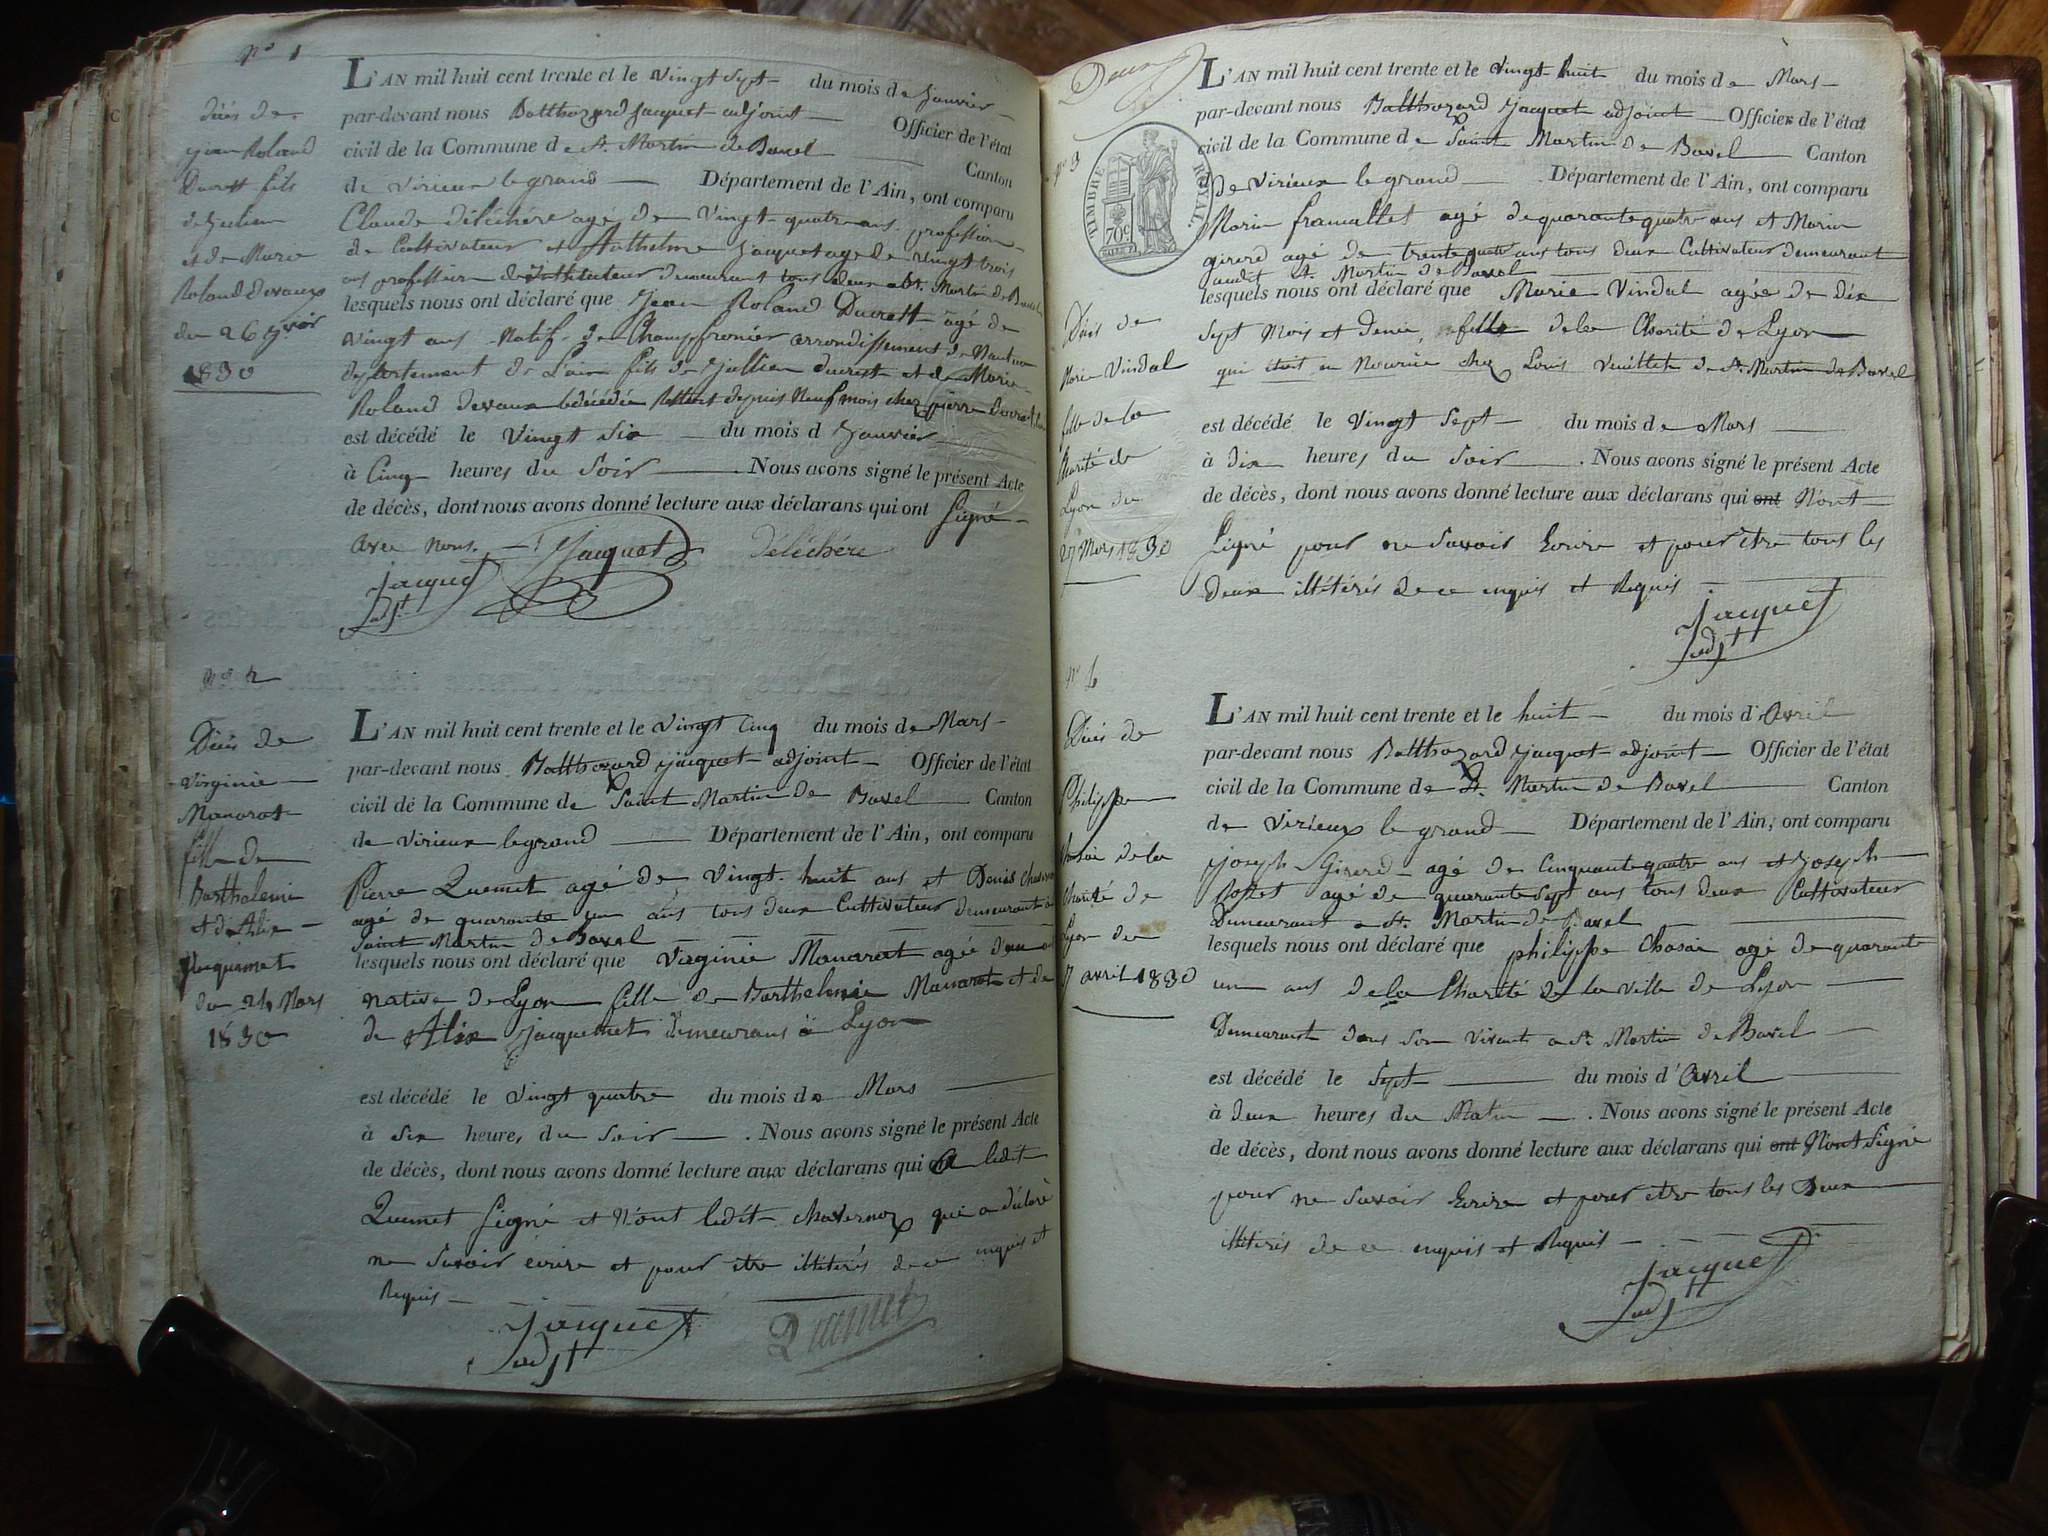 N° 1
décès de
jean Roland
Ducrett fils
de Julien
et de Marie
Roland devaux
du 26 j.vier
1830
L'AN mil huit cent trente et le vingt sept du mois de janvier
par-devant nous Balthazard jacquet adjoint Officier de l'état
civil de la Commune de St. Martin de Bavel Canton
de virieux le grand Département de l'Ain, ont comparu
Claude déléchère age de vingt quatre ans profession
de Cultivateur et Anthelme jacquet age de vingt trois
ans profession d'instituteur demeurant tous deux a St. Martin de Bavel
lesquels nous ont déclaré que Jean Roland Ducrett agé de
vingt ans Natif de Champfromier arrondissement de Nantua
département de L'ain fils de Jullien ducrett et de Marie
Roland devaux décédée depuis Neuf mois chez pierre
est décédé le vingt six du mois d janvier
à Cinq heures du Soir . Nous avons signé le présent Acte
de décès, dont nous avons donné lecture aux déclarans qui ont Signé
avec nous. Jacquet déléchére
jacquet
adjt.
N° 2
Décès de
virginie
Manarat
fille de
Barthelemi
et d'Alix
jacquemet
du 24 Mars
1830
L'AN mil huit cent trente et le vingt Cinq du mois de Mars
par-devant nous Balthazard jacquet adjoint Officier de l'état
civil de la Commune de Saint Martin de Bavel Canton
de virieux legrand Département de l'Ain, ont comparu
Pierre Quemet agé de vingt huit ans et Denis
agé de quarante un ans tous deux Cultivateur demeurant a
Saint Martin de Bavel
lesquels nous ont déclaré que virginie Manarat agée d'un an
native de Lyon fille de Barthelmie Manarat et de
de Alix jacquemet demeurans à Lyon
est décédé le vingt quatre du mois de Mars
à six heures du Soir . Nous avons signé le présent Acte
de décès, dont nous avons donné lecture aux déclarans qui a ledit
Quemet signé et N'ont ledit chavernoz qui a déclaré
ne Savoir écrire et pour etre illitérés de ce enquis et
Requis
jacquet
adjt
Quemet
Deux
N° 3
TIMBRE ROYAL
70c
Décès de
Marie Vindal
fille de la
Charité de
Lyon du
27 Mars 1830
L'AN mil huit cent trente et le vingt huit du mois de Mars
par-devant nous Balthazard jacquet adjoint Officier de l'état
civil de la Commune de Saint Martin de Bavel Canton
de virieux le grand Département de l'Ain, ont comparu
Marin framallet agé de quarante quatre ans et Marin
girerd agé de trente quatre ans tous deux Cultivateur demeurant
audit St. Martin de Bavel
lesquels nous ont déclaré que Marie Vindal agée de dix
sept Mois et demie, fille de la Charité de Lyon
qui étoit en Nourrice chez Louis veuillet de St. Martin de Bavel
est décédé le vingt sept du mois de Mars
à dix heures du Soir . Nous avons signé le présent Acte
de décès, dont nous avons donné lecture aux déclarans qui ont N'ont
signé pour ne Savoir Ecrire et pour etre tous les
deux illitérés de ce enquis et Requis
jacquet
adjt
N° 4
Décès de
Philippe
Chosai de la
Charité de
Lyon du
7 avril 1830
L'AN mil huit cent trente et le huit du mois d'Avril
par-devant nous Balthazard jacquet adjoint Officier de l'état
civil de la Commune de St. Martin de Bavel Canton
de virieux le grand Département de l'Ain, ont comparu
joseph Girerd agé de Cinquante quatre ans et joseph
agé de quarante sept ans tous deux Cultivateur
Demeurant a St. Martin de Bavel
lesquels nous ont déclaré que philippe Chosai agé de quarante
un ans de la Charité de la ville de Lyon
Demeurant dans son vivant a St. Martin de Bavel
est décédé le Sept du mois d'Avril
à deux heures du Matin . Nous avons signé le présent Acte
de décès, dont nous avons donné lecture aux déclarans qui ont N'ont signé
pour ne Savoir Ecrire et pour etre tous les Deux
illitérés de ce enquis et Requis
jacquet
adjt